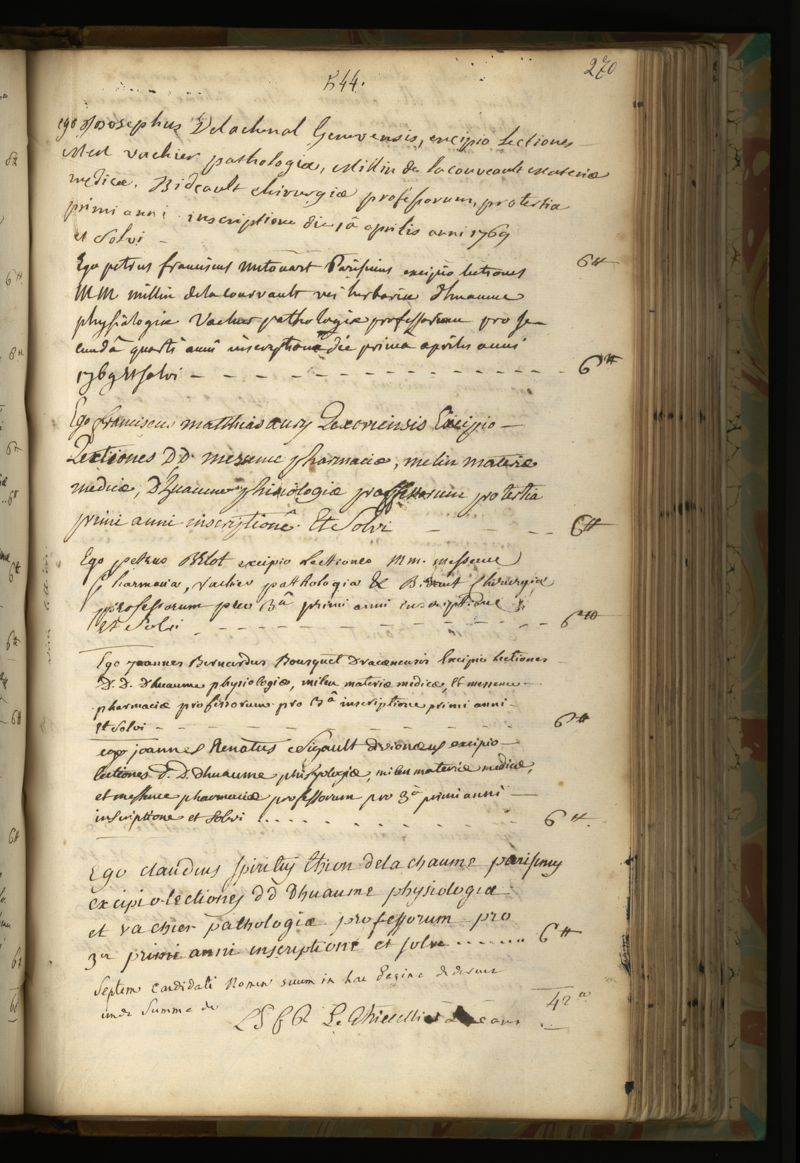 544.
270
ego Josephus Delachenal Genevensis, excipio Lectiones
vachier pathologiæ, Millin de lacourvault materiæ
medicæ, Bideault chirurgiæ professorum, pro tertia
primi anni inscriptione die 1â aprilis anni 1769
et Solvi 6tt
Ego petrus franciscus mitouart Parisinus excipio lectiones
MM millin delacourvault rei herbariæ dhuaume
physiologiæ Vachier pathologiæ professorum pro se
cundâ quarti anni inscriptione die prima aprilis anni
1769 Et solvi 6tt
Ego franciscus matthias aury Lexoviensis Excipio
Lectiones DD messence pharmaciæ, milin materiæ
medicæ, Dhuaume phisiologiæ professorum pro tertia
primi anni inscriptione Et Solvi 6tt
Ego petrus Belot excipio Lectiones Mm. messence
pharmaciæ, vachier pathologiæ & chirurgiæ
professorum pro 3â primi anni inscriptione
Et Solvi 6tt
Ego joannes Bernardus Bousquet Dracænensis Excipio lectiones
D. D. Dhuaume physiologiæ, milin materiæ medicæ, Et messence
pharmaciæ professorum pro 3â inscriptione primi anni
Et Solvi 6tt
ego joannes Renatus Sigault divionæus excipio
lectiones D. D. dhuaume phisyologiæ, milin materiæ medicæ,
et messence pharmaciæ professorum pro 3â primi anni
inscriptione et Solvi 6tt.
Ego claudius spiritus thion delachaume parisinus
excipio lectiones dd Dhuaume physiologiæ
et vachier pathologiæ professorum pro
3a primi anni inscriptione et solvi 6tt
Septem candidati nomen suum in hac pagina dederunt
unde Summa de 42tt
Le Thieullier